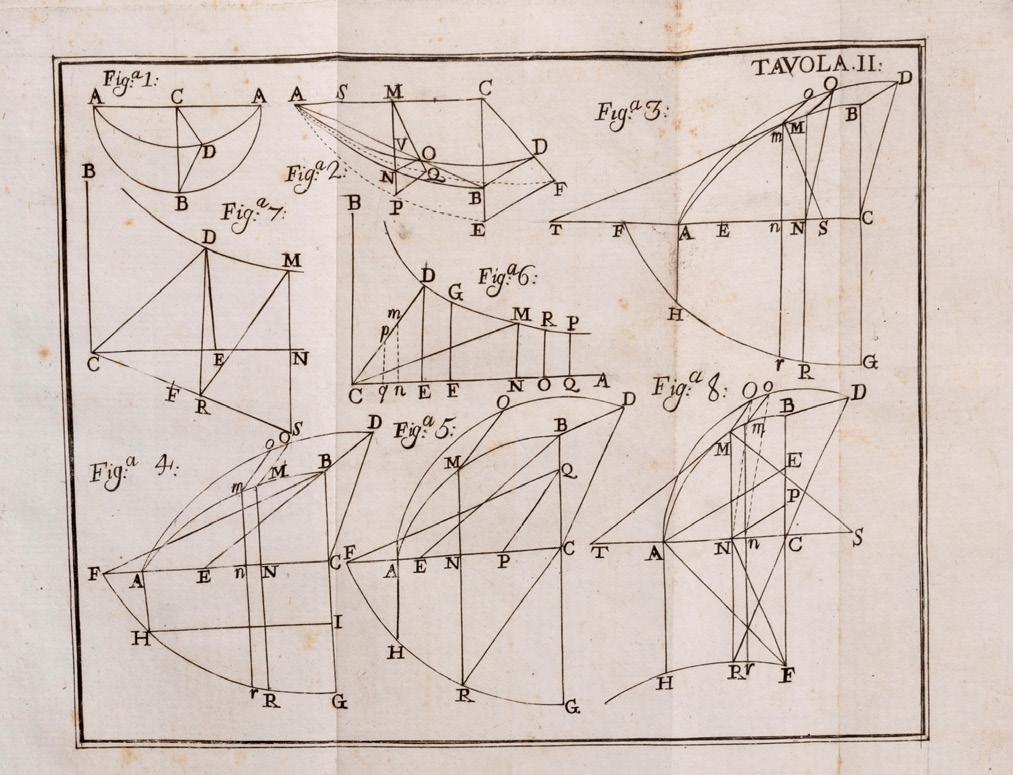 TAVOLA.II:
Fig.a 1:
A C A
D
B
Fig.a 2:
A S M C
V O D
N Q F
P B
E
Fig.a 3:
o O D
m M B
T F A E n N S C
H
r R G
B
Fig.a 7:
D M
C E N
F R
S
B
Fig.a 6:
D G
m M R P
p
C q n E F N O Q A
Fig.a 4:
o O D
m M B
F A E n N C
H I
r R G
Fig.a 5:
O D
M B
Q
F A E N P C
H
R G
Fig.a 8:
O o D
m B
M E
P
T A N n C S
H R r F